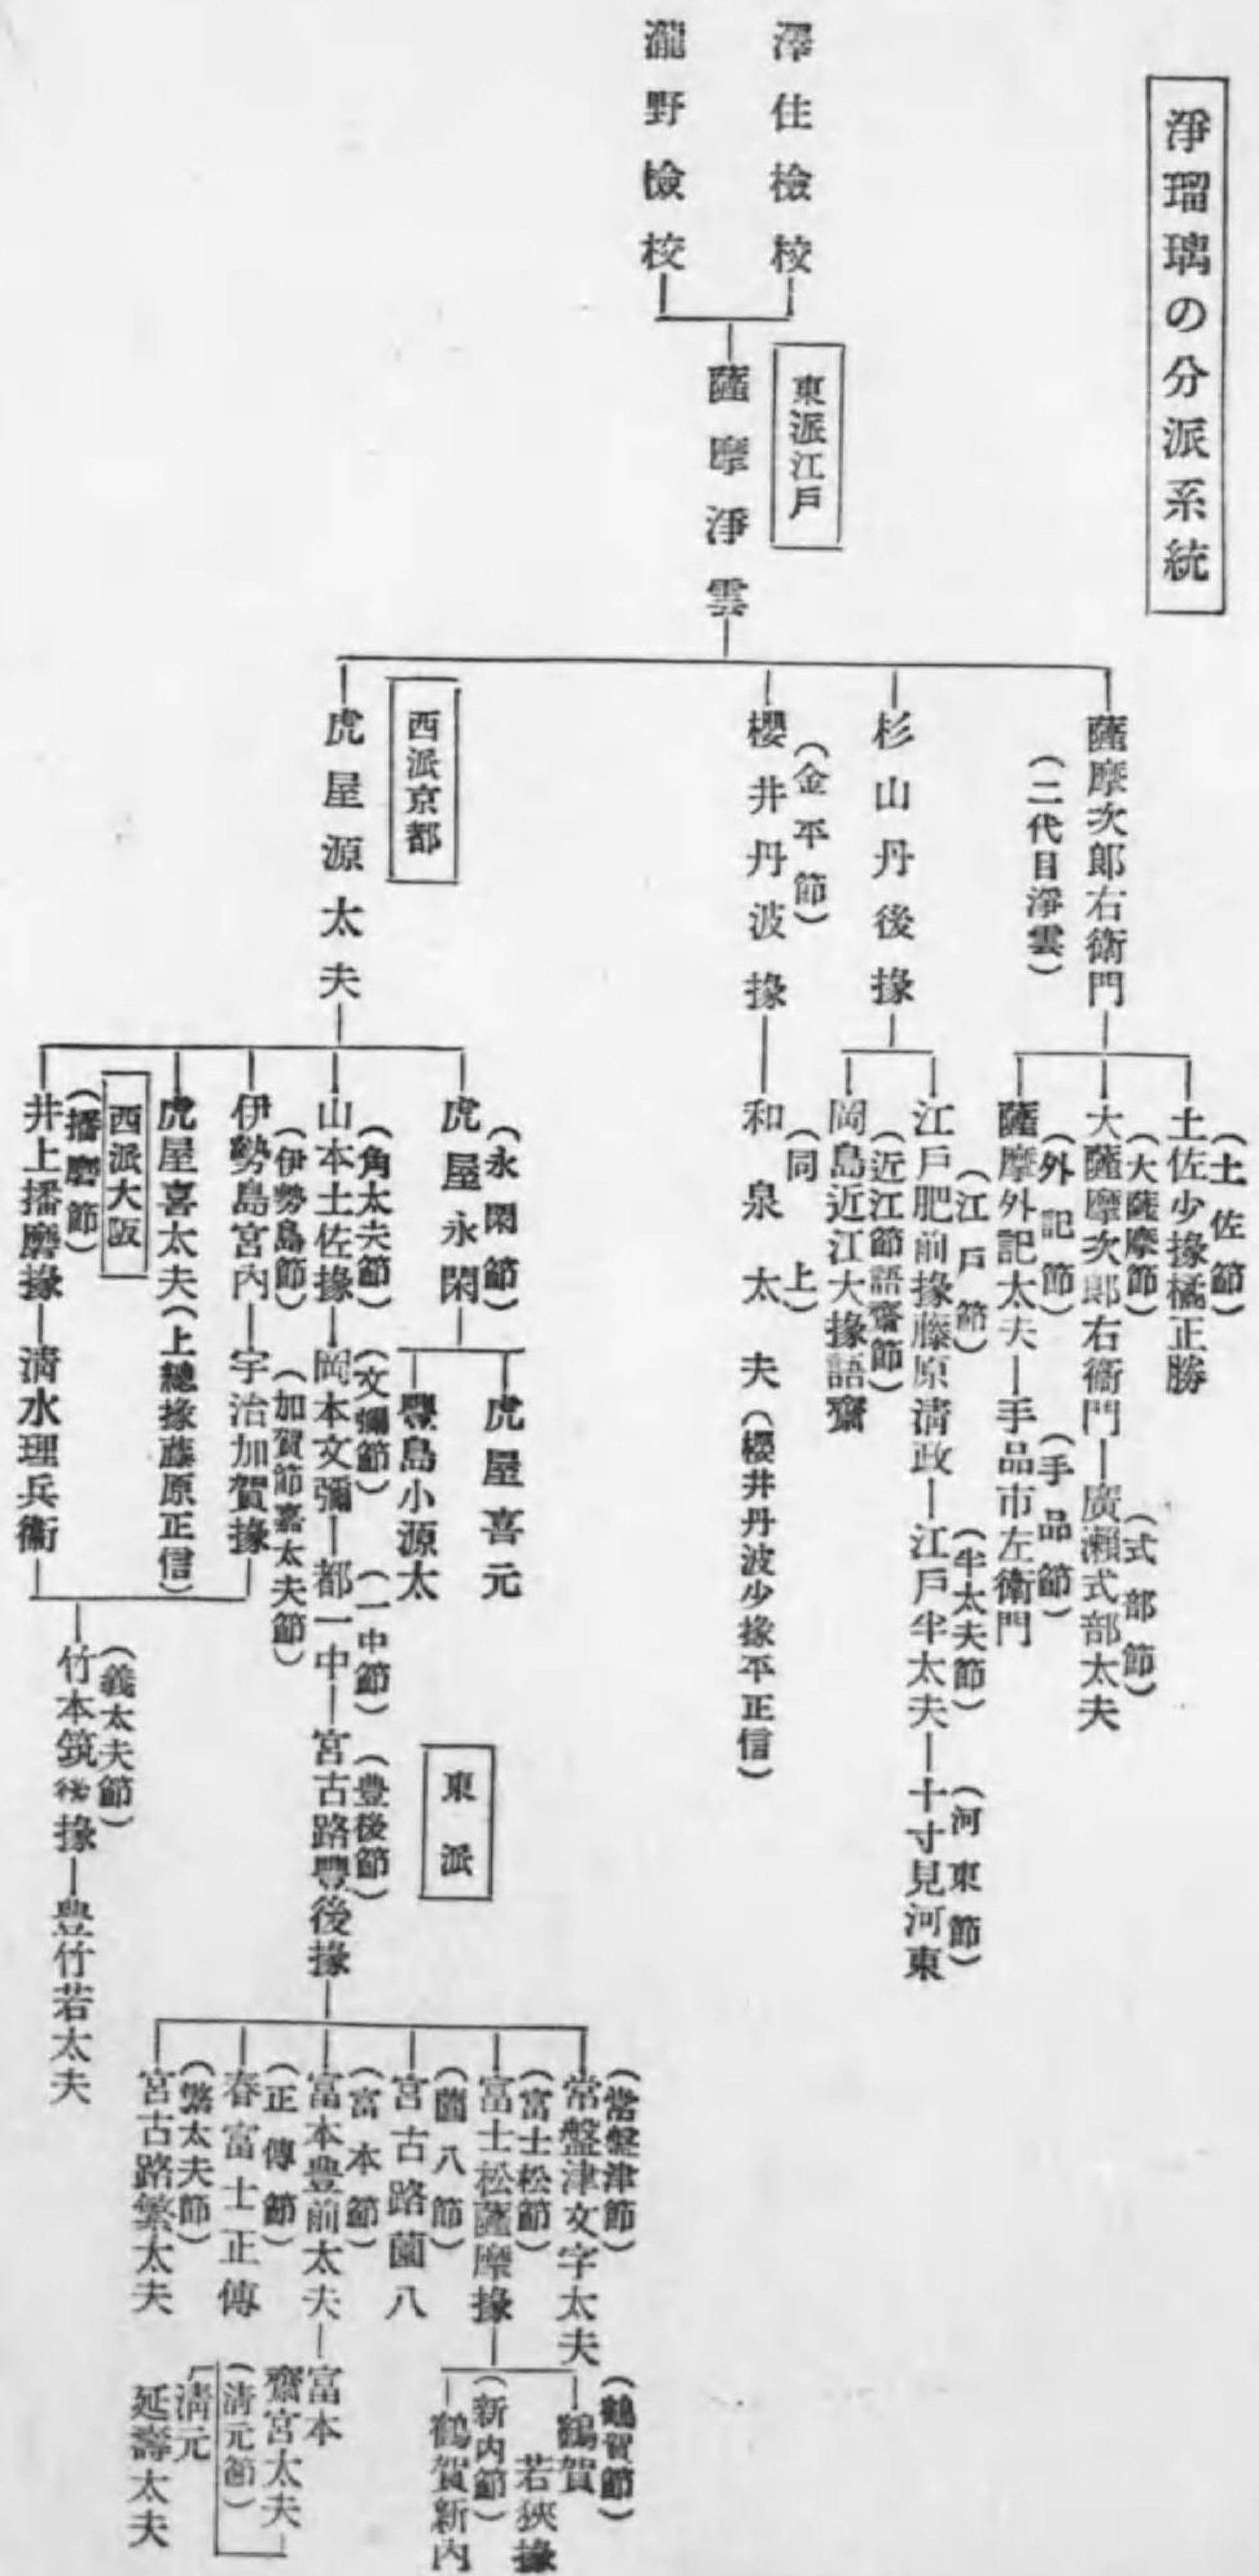 淨瑠璃の分派系統
澤住檢校
瀧野檢校
東派江戶
薩摩淨雲
薩摩次郎右衞門
（二代目淨雲）
（土佐節）
土佐少掾橘正勝
（大薩摩節）
大薩摩次郎右衞門
（式部節）
廣瀨式部太夫
（外記節）
薩摩外記太夫
（手品節）
手品市左衞門
杉山丹後掾
（江戶節）
江戶肥前掾藤原淸政
（半太夫節）
江戶半太夫
（河東節）
十寸見河東
（近江節語齋節）
岡島近江大掾語齋
（金平節）
櫻井丹波掾
（同上）
和泉太夫（櫻井丹波少掾平正信）
西派京都
虎屋源太夫
（永閑節）
虎屋永閑
虎屋喜元
豐島小源太
（角太夫節）
山本土佐掾
（文彌節）
岡本文彌
（一中節）
都一中
（豊後節）
宮古路豐後掾
東派
（常磐津節）
常盤津文字太夫
（富士松節）
富士松薩摩掾
（鶴賀節）
鶴賀
若狹掾
（新內節）
鶴賀新內
（薗八節）
宮古路薗八
（富本節）
富本豊前太夫
富本
齋宮太夫
（淸元節）
淸元
延壽太夫
（正傳節）
春富士正傳
（繁太夫節）
宮古路繁太夫
（伊勢島節）
伊勢島宮內
（加賀節嘉太夫節）
宇治加賀掾
虎屋喜太夫（上總掾藤原正信）
西派大阪
（播磨節）
井上播磨掾
淸水理兵衞
（義太夫節）
竹本筑後掾
豊竹若太夫